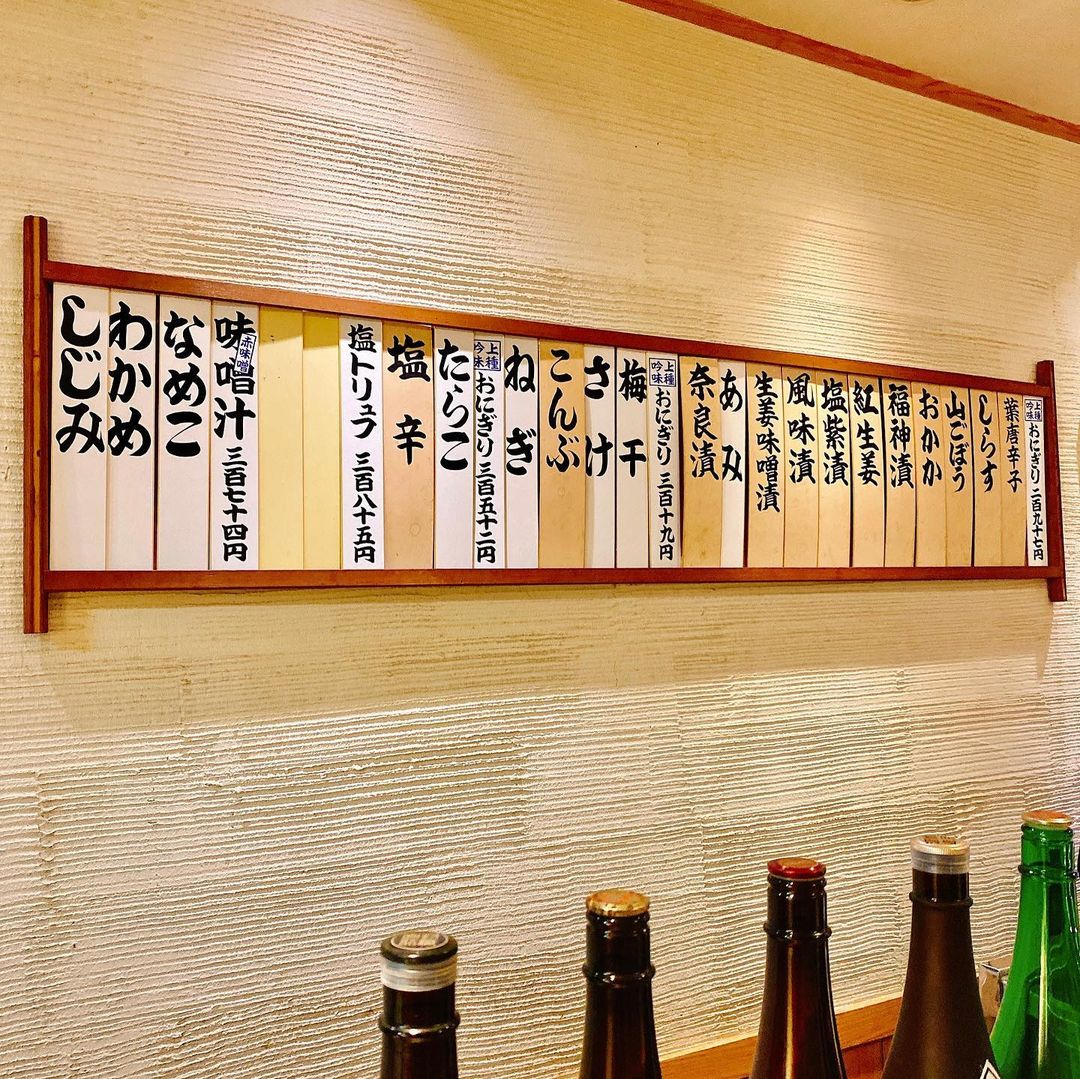 上種吟味 おにぎり 二百九十七円
葉唐辛子
しらす
山ごぼう
おかか
福神漬
紅生姜
塩紫漬
風味漬
生姜味噌漬
あみ
奈良漬
上種吟味 おにぎり 三百十九円
梅干
さけ
こんぶ
ねぎ
上種吟味 おにぎり 三百五十二円
たらこ
塩辛
塩トリュフ 三百八十五円
味噌汁 赤味噌 三百七十四円
なめこ
わかめ
しじみ